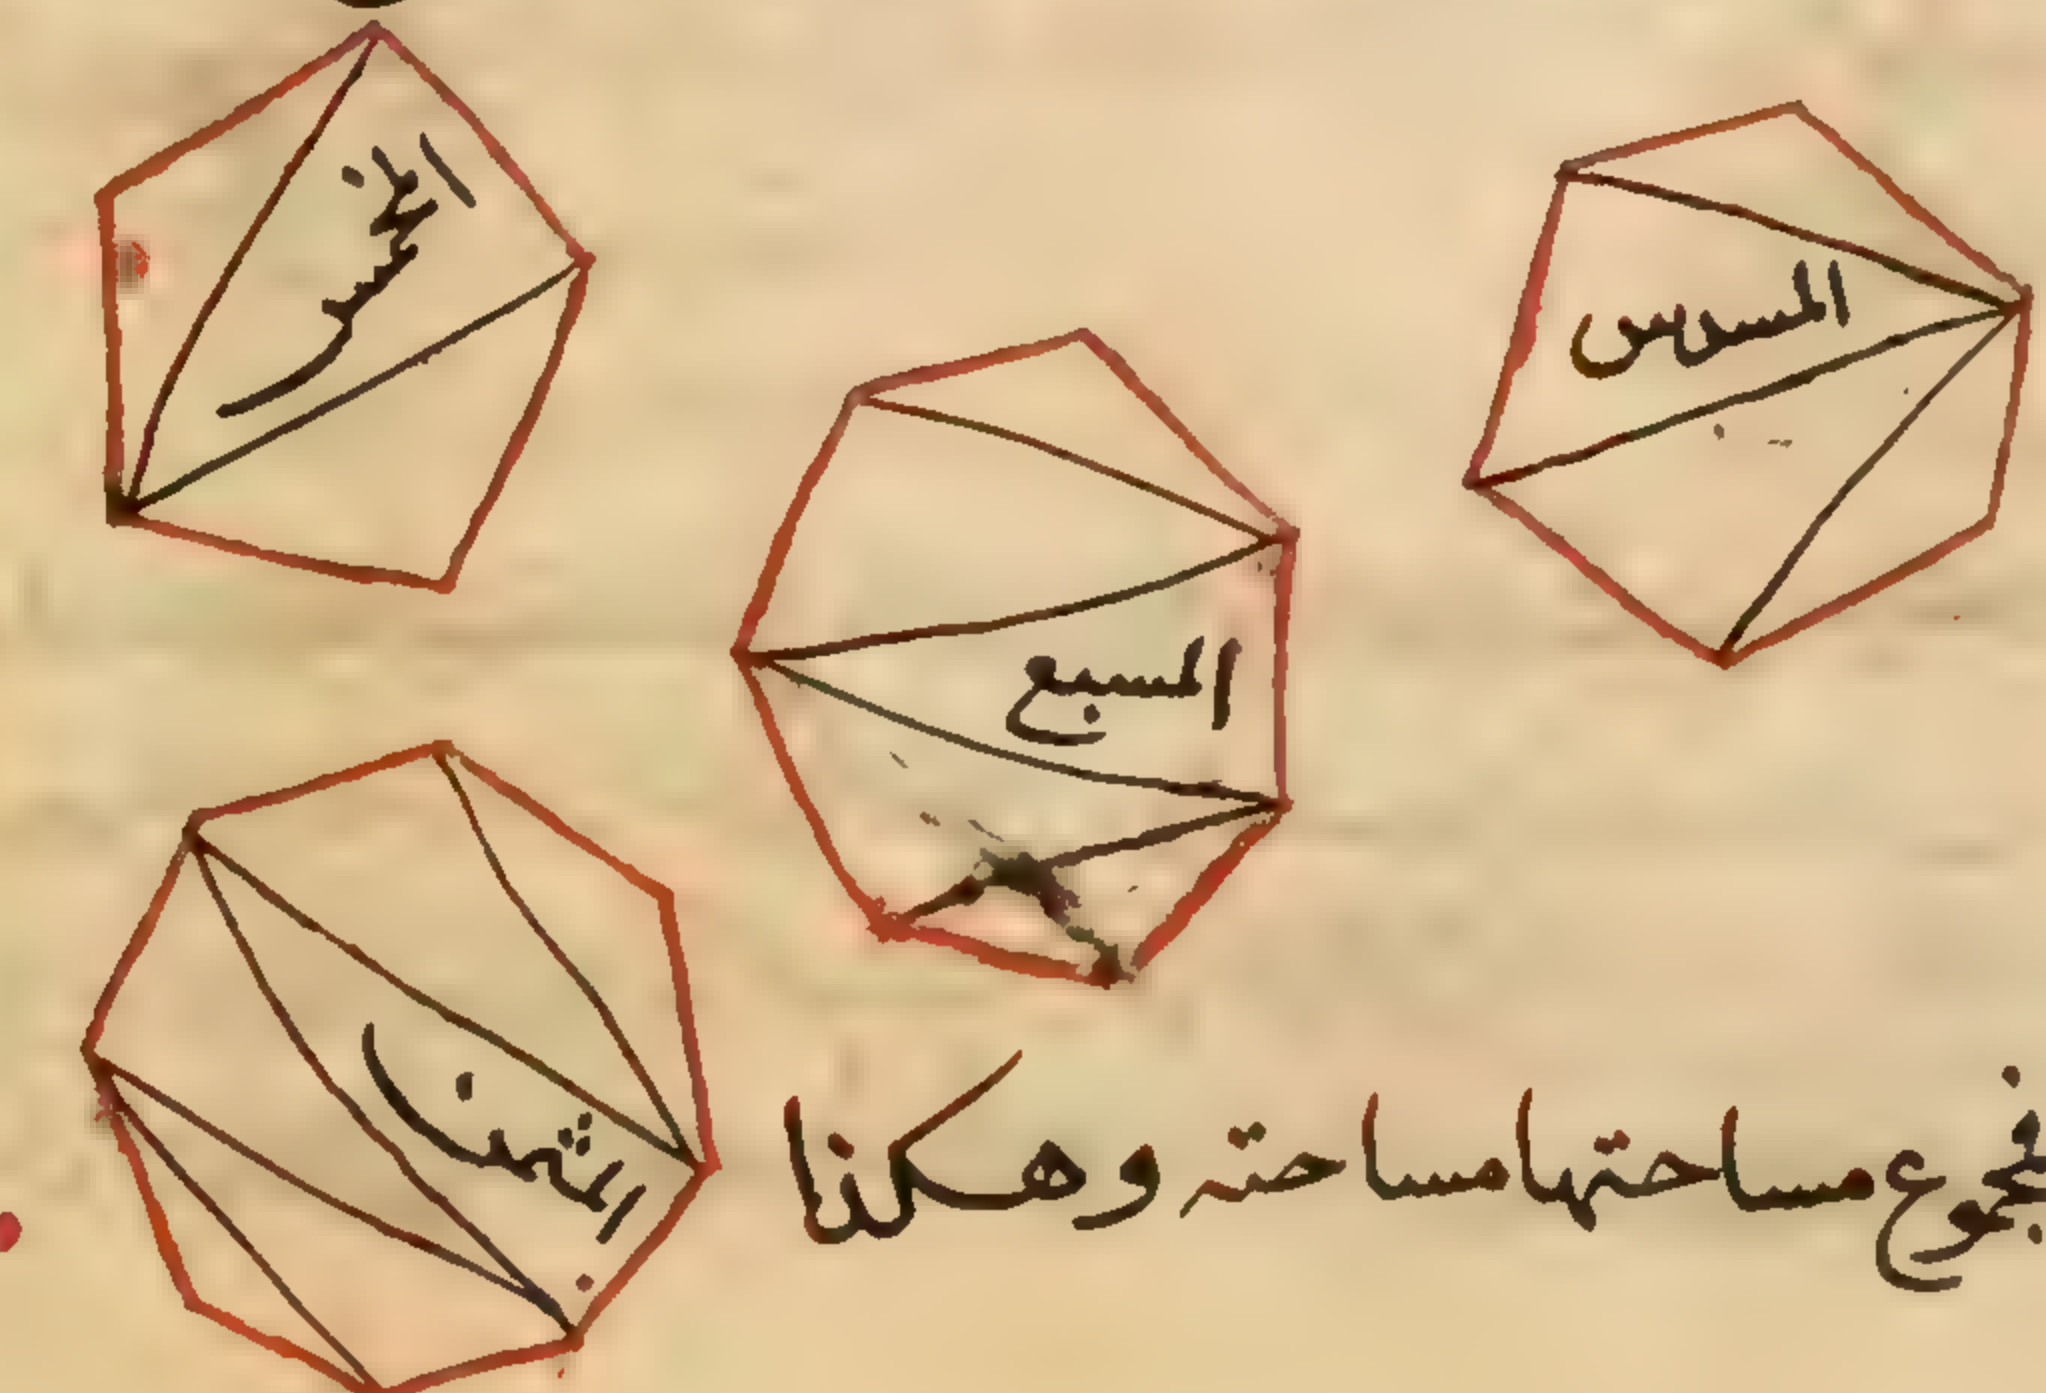 المخمس
المسدس
المسبع
المثمن
فمجموع مساحتها مساحته وهكذا